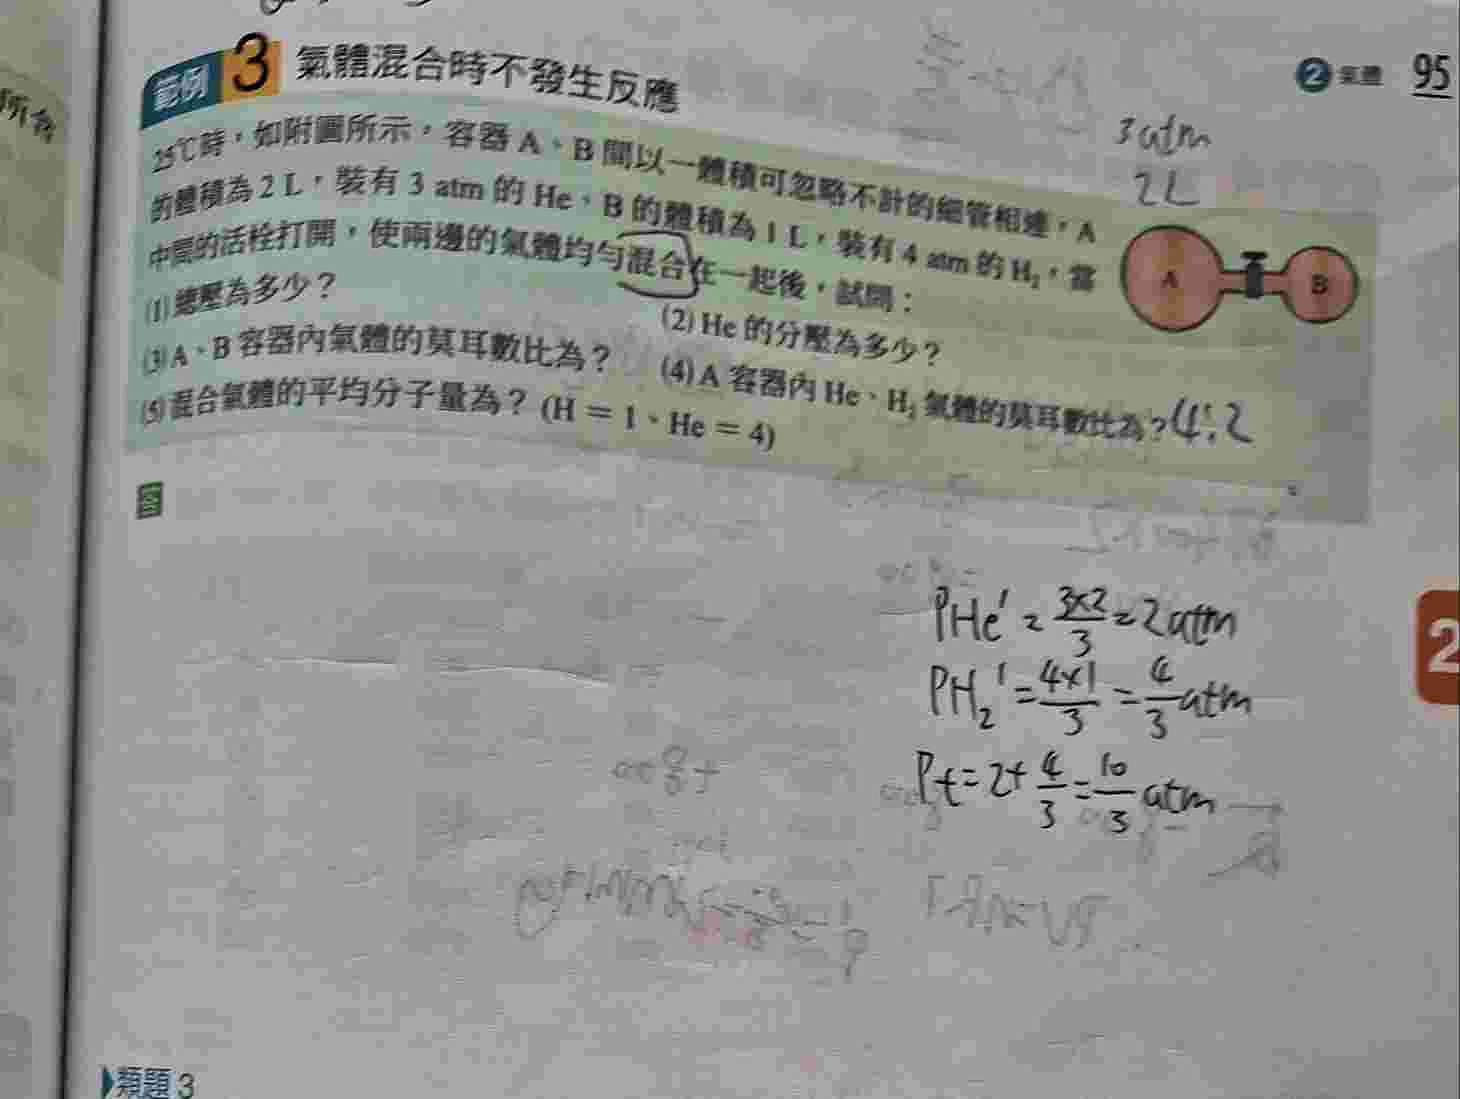 所含
範例 3 氣體混合時不發生反應
2 氣體 95
3atm
2L
25℃時，如附圖所示，容器 A、B 間以一體積可忽略不計的細管相連，A
的體積為 2 L，裝有 3 atm 的 He、B 的體積為 1 L，裝有 4 atm 的 H₂，當
中間的活栓打開，使兩邊的氣體均勻混合在一起後，試問：
A B
(1) 總壓為多少？ (2) He 的分壓為多少？
(3) A、B 容器內氣體的莫耳數比為？ (4) A 容器內 He、H₂ 氣體的莫耳數比為？
(5) 混合氣體的平均分子量為？(H = 1、He = 4)
答
PHe' = 3×2/3 = 2atm
PH₂' = 4×1/3 = 4/3 atm
2
Pt = 2+4/3 = 10/3 atm
類題 3